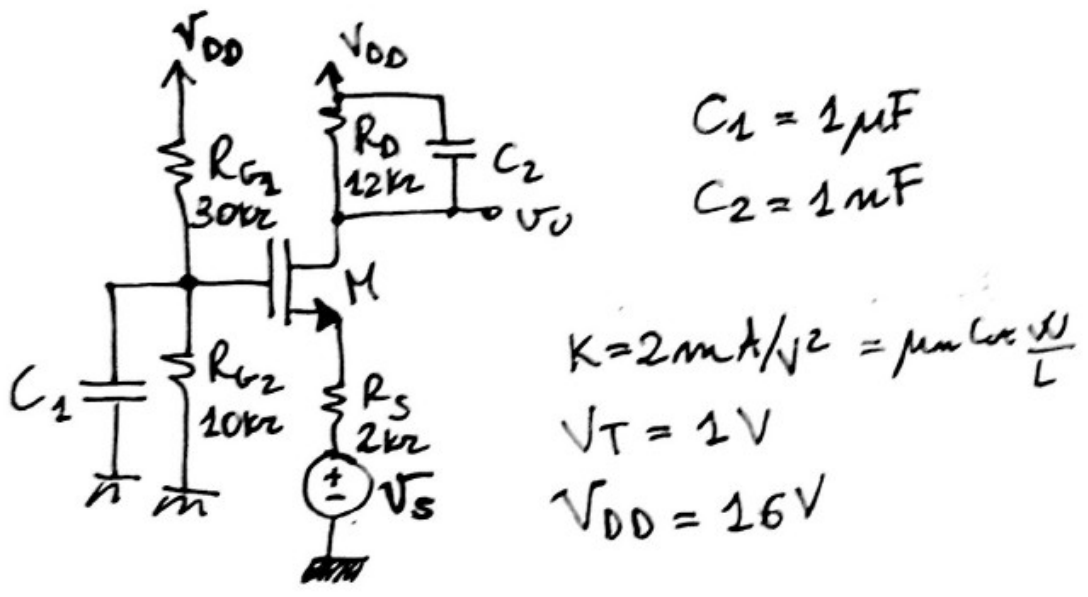 V_DD
V_DD
R_G1
30kΩ
R_D
12kΩ
C_2
v_o
M
C_1
R_G2
10kΩ
R_S
2kΩ
+
-
v_s
C_1 = 1μF
C_2 = 1nF
K = 2mA/V² = μn Cox W/L
V_T = 1V
V_DD = 16V